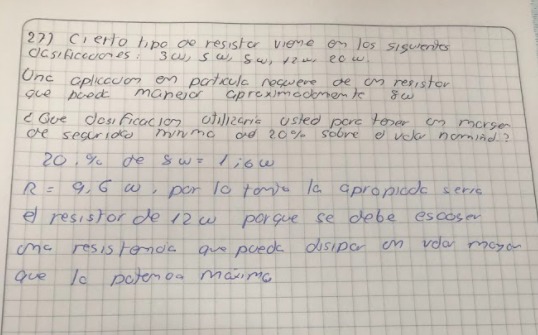 27) Cierto tipo de resistor viene en los siguientes
clasificaciones: 3w, 5w, 8w, 12w, 20w.
Una aplicacion en particula requiere de un resistor
que puede manejar aproximadamente 8w
¿Que clasificacion utilizaria usted para tener un margen
de seguridad minimo del 20% sobre el valor nominal?
20% de 8w = 1,6w
R = 9,6 w, por lo tanto la apropiada seria
el resistor de 12w porque se debe escoger
una resistencia que puede disipar un valor mayor
que la potencia maxima